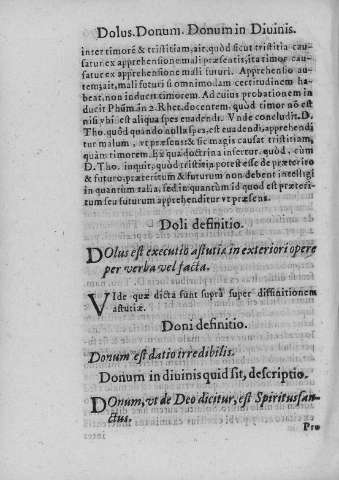 Dolus. Donum. Donum in Diuinis.
inter timorē & tristitiam, ait, quòd sicut tristitia cau-
satur ex apprehensione mali præsentis, ita timor cau-
satur ex apprehensione mali futuri. Apprehensio au-
tem, ait, mali futuri si omnimodam certitudinem ha-
beat, non inducit timorem. Ad cuius probationem in
ducit Phūm. in 2. Rhet. docentem, quòd timor nō est
nisi vbi est aliqua spes euadendi. Vnde concludit D.
Tho. quôd quando nulla spes, est euadendi, apprehendi
tur malum, vt præsens: & sic magis causat tristitiam,
quàm timorem. Ex qua doctrina insertur, quòd, cùm
D. Tho. inquit, quòd tristitia potest esse de præterito
& futuro: præteritum & futurum non debent intelligi
in quantum talia, sed in quantùm id quod est præteri-
tum seu futurum apprehenditur vt præsens.
Doli definitio.
DOlus est executio astutia in exteriori opere
per verba vel facta.
VIde quæ dicta sunt suprà super diffinitionem
astutiæ.
Doni definitio.
Donum est datio irredibilis.
Donum in diuinis quid sit, descriptio.
DOnum, vt de Deo dicitur, est Spiritus san-
ctus.
Pro